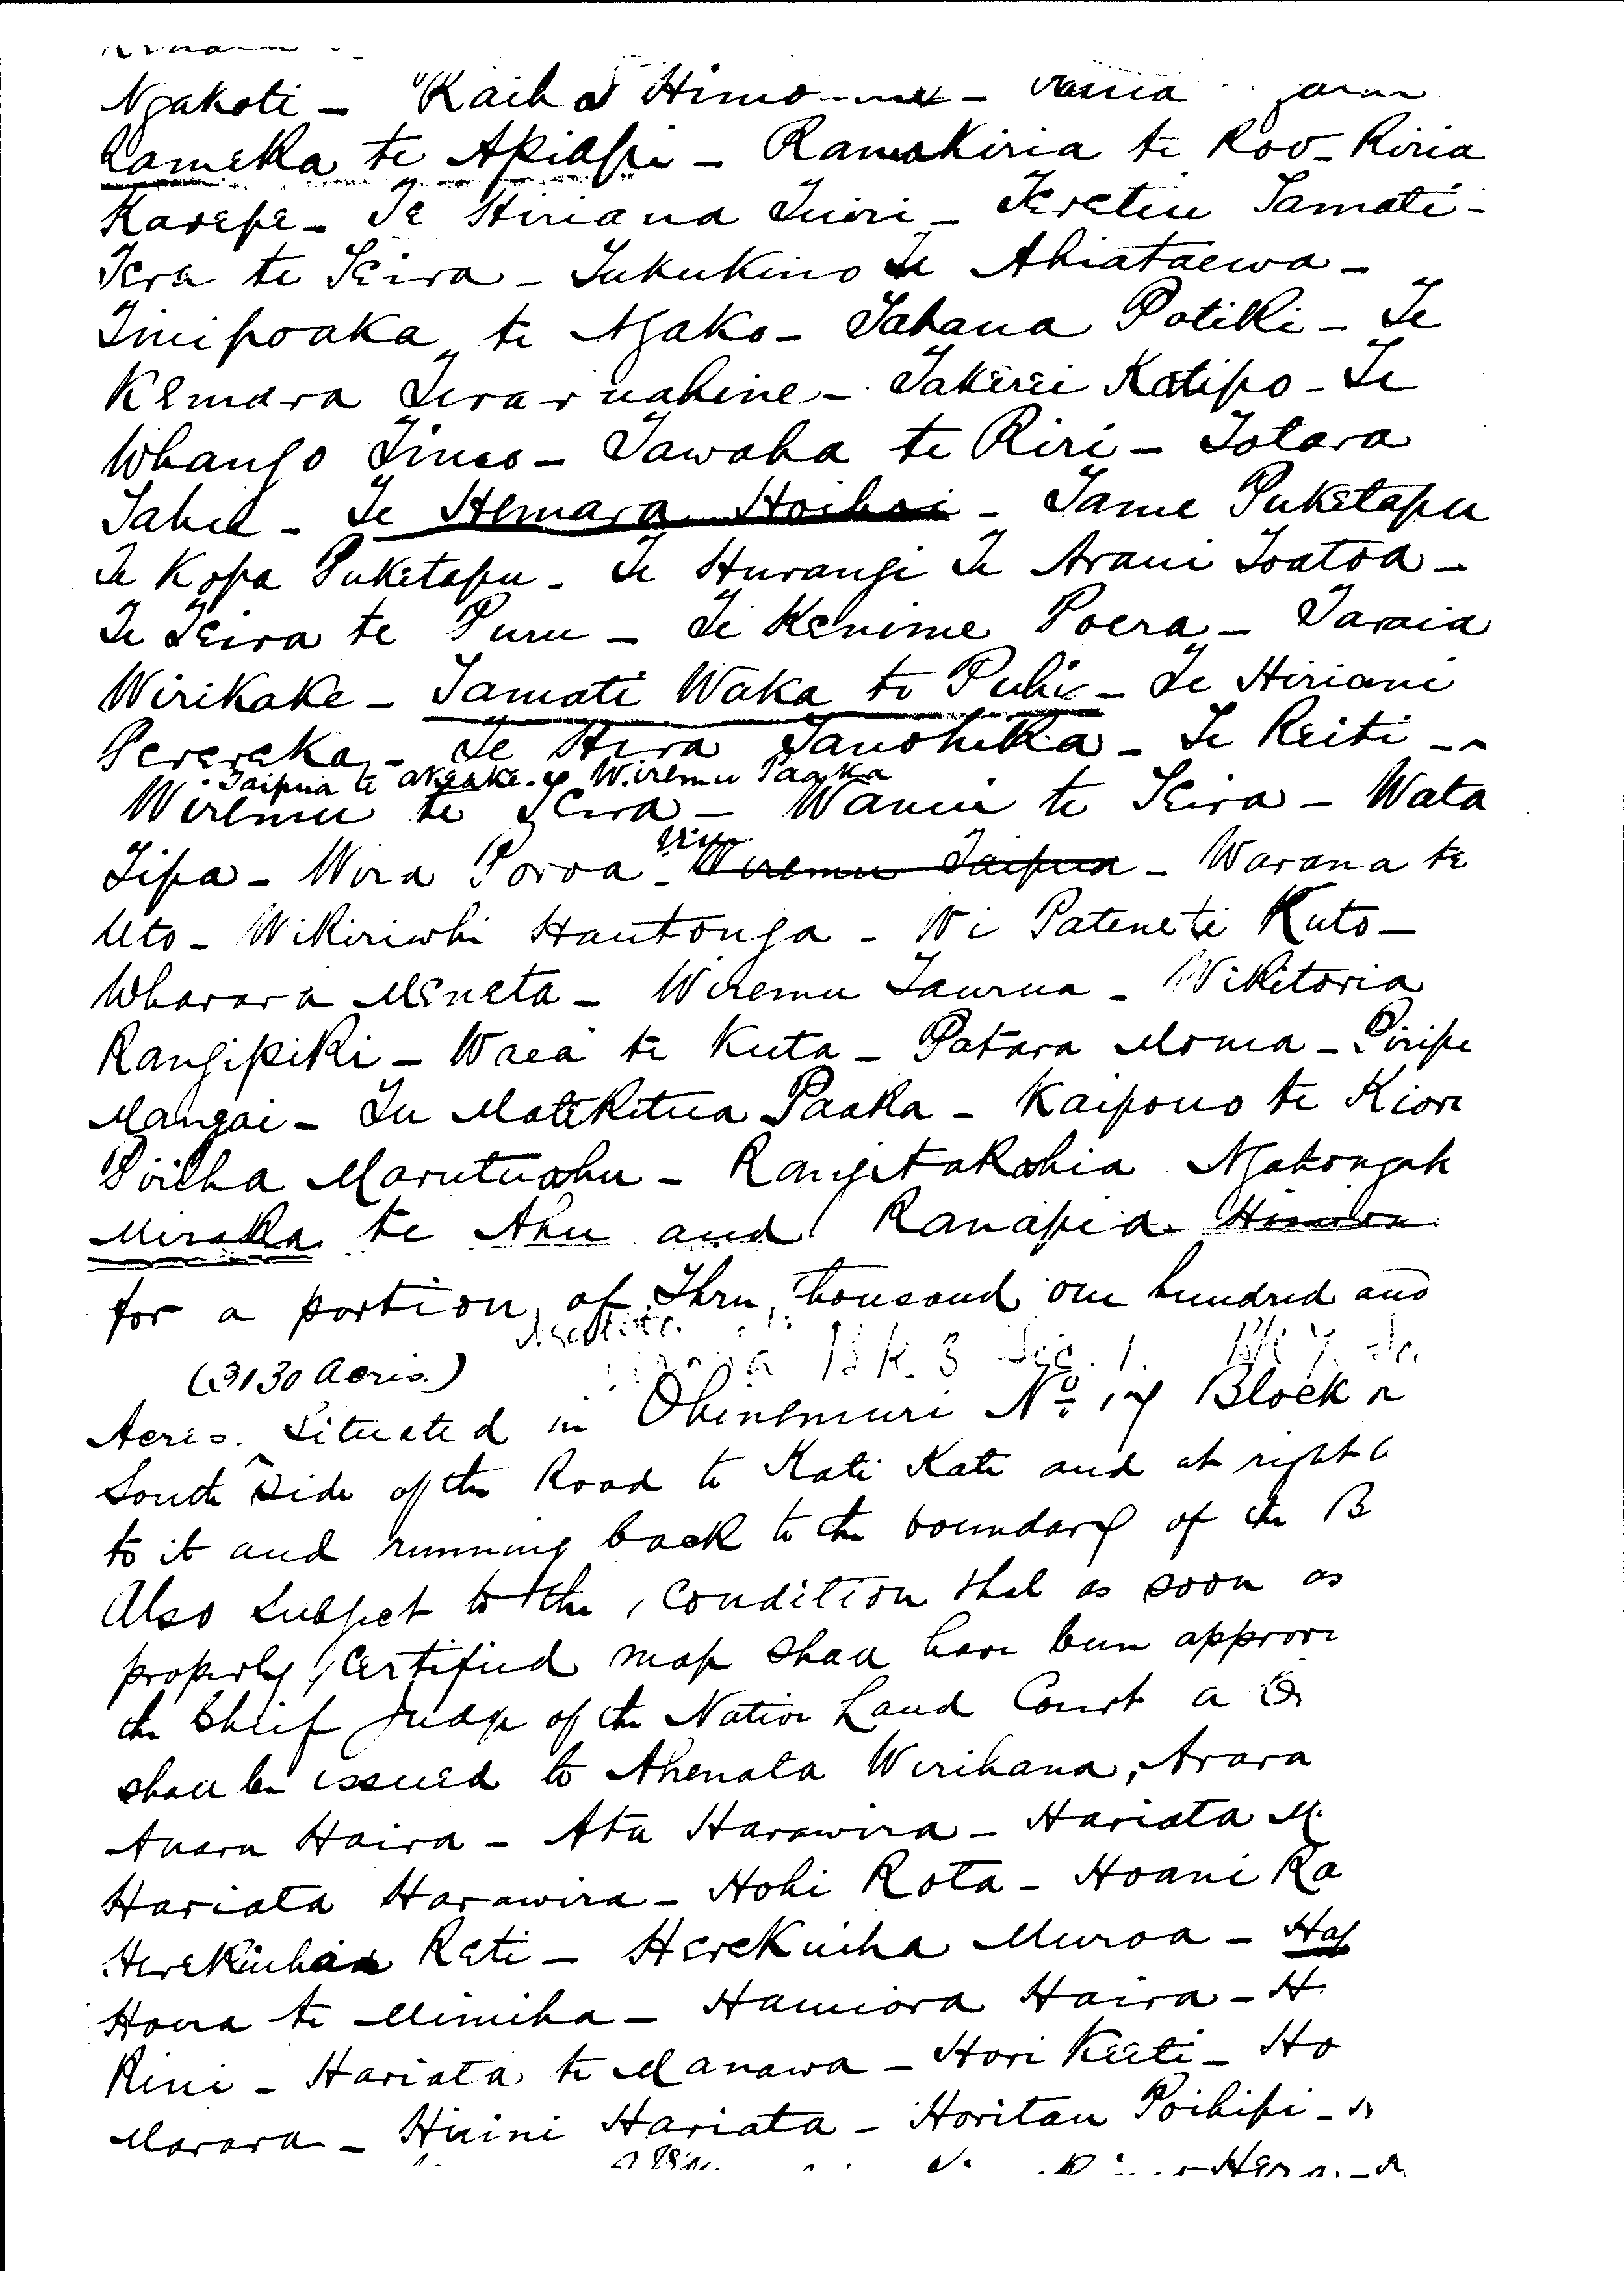 Ngakoti - Raiha
Rameka te Apiapi - Ramakiria te Roo - Riria
Karepe - Te Hiriana Tuiri - Teretiu Tamati -
Tera te Teira - Tukukino Te Ahiataewa -
Tinipoaka te Ngako - Tahana Potiki - Te
Kemara Tewarwahine - Takerei Katipo - Te
Whango Timeo - Tawaha te Riri - Totara
Tahel - Te Hemara Hoihoi - Tame Puketapu
Te Kopa Puketapu - Te Hurangi Te Arani Toatoa -
Te Teira te Puru - Te Kerime Poera - Taraia
Wirikake - Tamati Waka te Puhi - Te Hiriani
Perereka - Te Hira Tanohika - Te Reiti -
Taipua te akeake - & Wiremu Paaka
Wiremu te Teira - Wamu te Teira - Wata
Tipa - Wira Poroa - Wiremu Taipua - Warana te
Uto - Wikiriwhi Hautonga - Wi Patene te Kuto -
Wharara Meneta - Wiremu Taurua - Wikitoria
Rangipiki - Waea te Kuta - Patara Moma - Piripi
Mangai - Tu Matekitua Paaka - Kaipono te Kiore
Piriha Marutuahu - Rangitakahia Ngakongak
Miraka te Ahu and Ranapia
for a portion of Three thousand one hundred and
Bk. 3 Sec. 1.
(3130 Acres.)
Acres. Situated in Ohinemuri No. 17 Block
South side of the Road to Kati Kati and at right
to it and running back to the boundary of the B
Also subject to the condition that as soon as
properly certified map shall have been approve
the Chief Judge of the Native Land Court a
shall be issued to Ahenata Wirihana, Arara
Anaru Haira - Ata Harawira - Hariata M
Hariata Harawira - Hohi Rota - Hoani Ra
Herekiuha Reti - Herekiuha Muroa - Hap
Hoera te Mimiha - Hamiora Haira - H
Rini - Hariata te Manawa - Hori Keeti - Ho
Marara - Hiini Hariata - Horitau Poihipi -